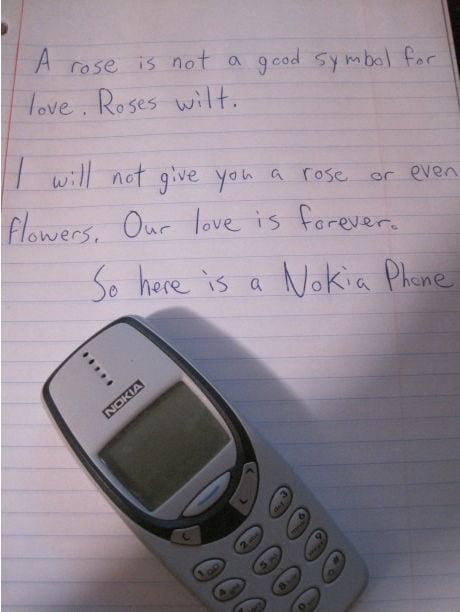 A rose is not a good symbol for
love. Roses wilt.
I will not give you a rose or even
flowers. Our love is forever.
So here is a Nokia Phone
NOKIA
C
1
2
3
4
5
6
7
8
9
0
#